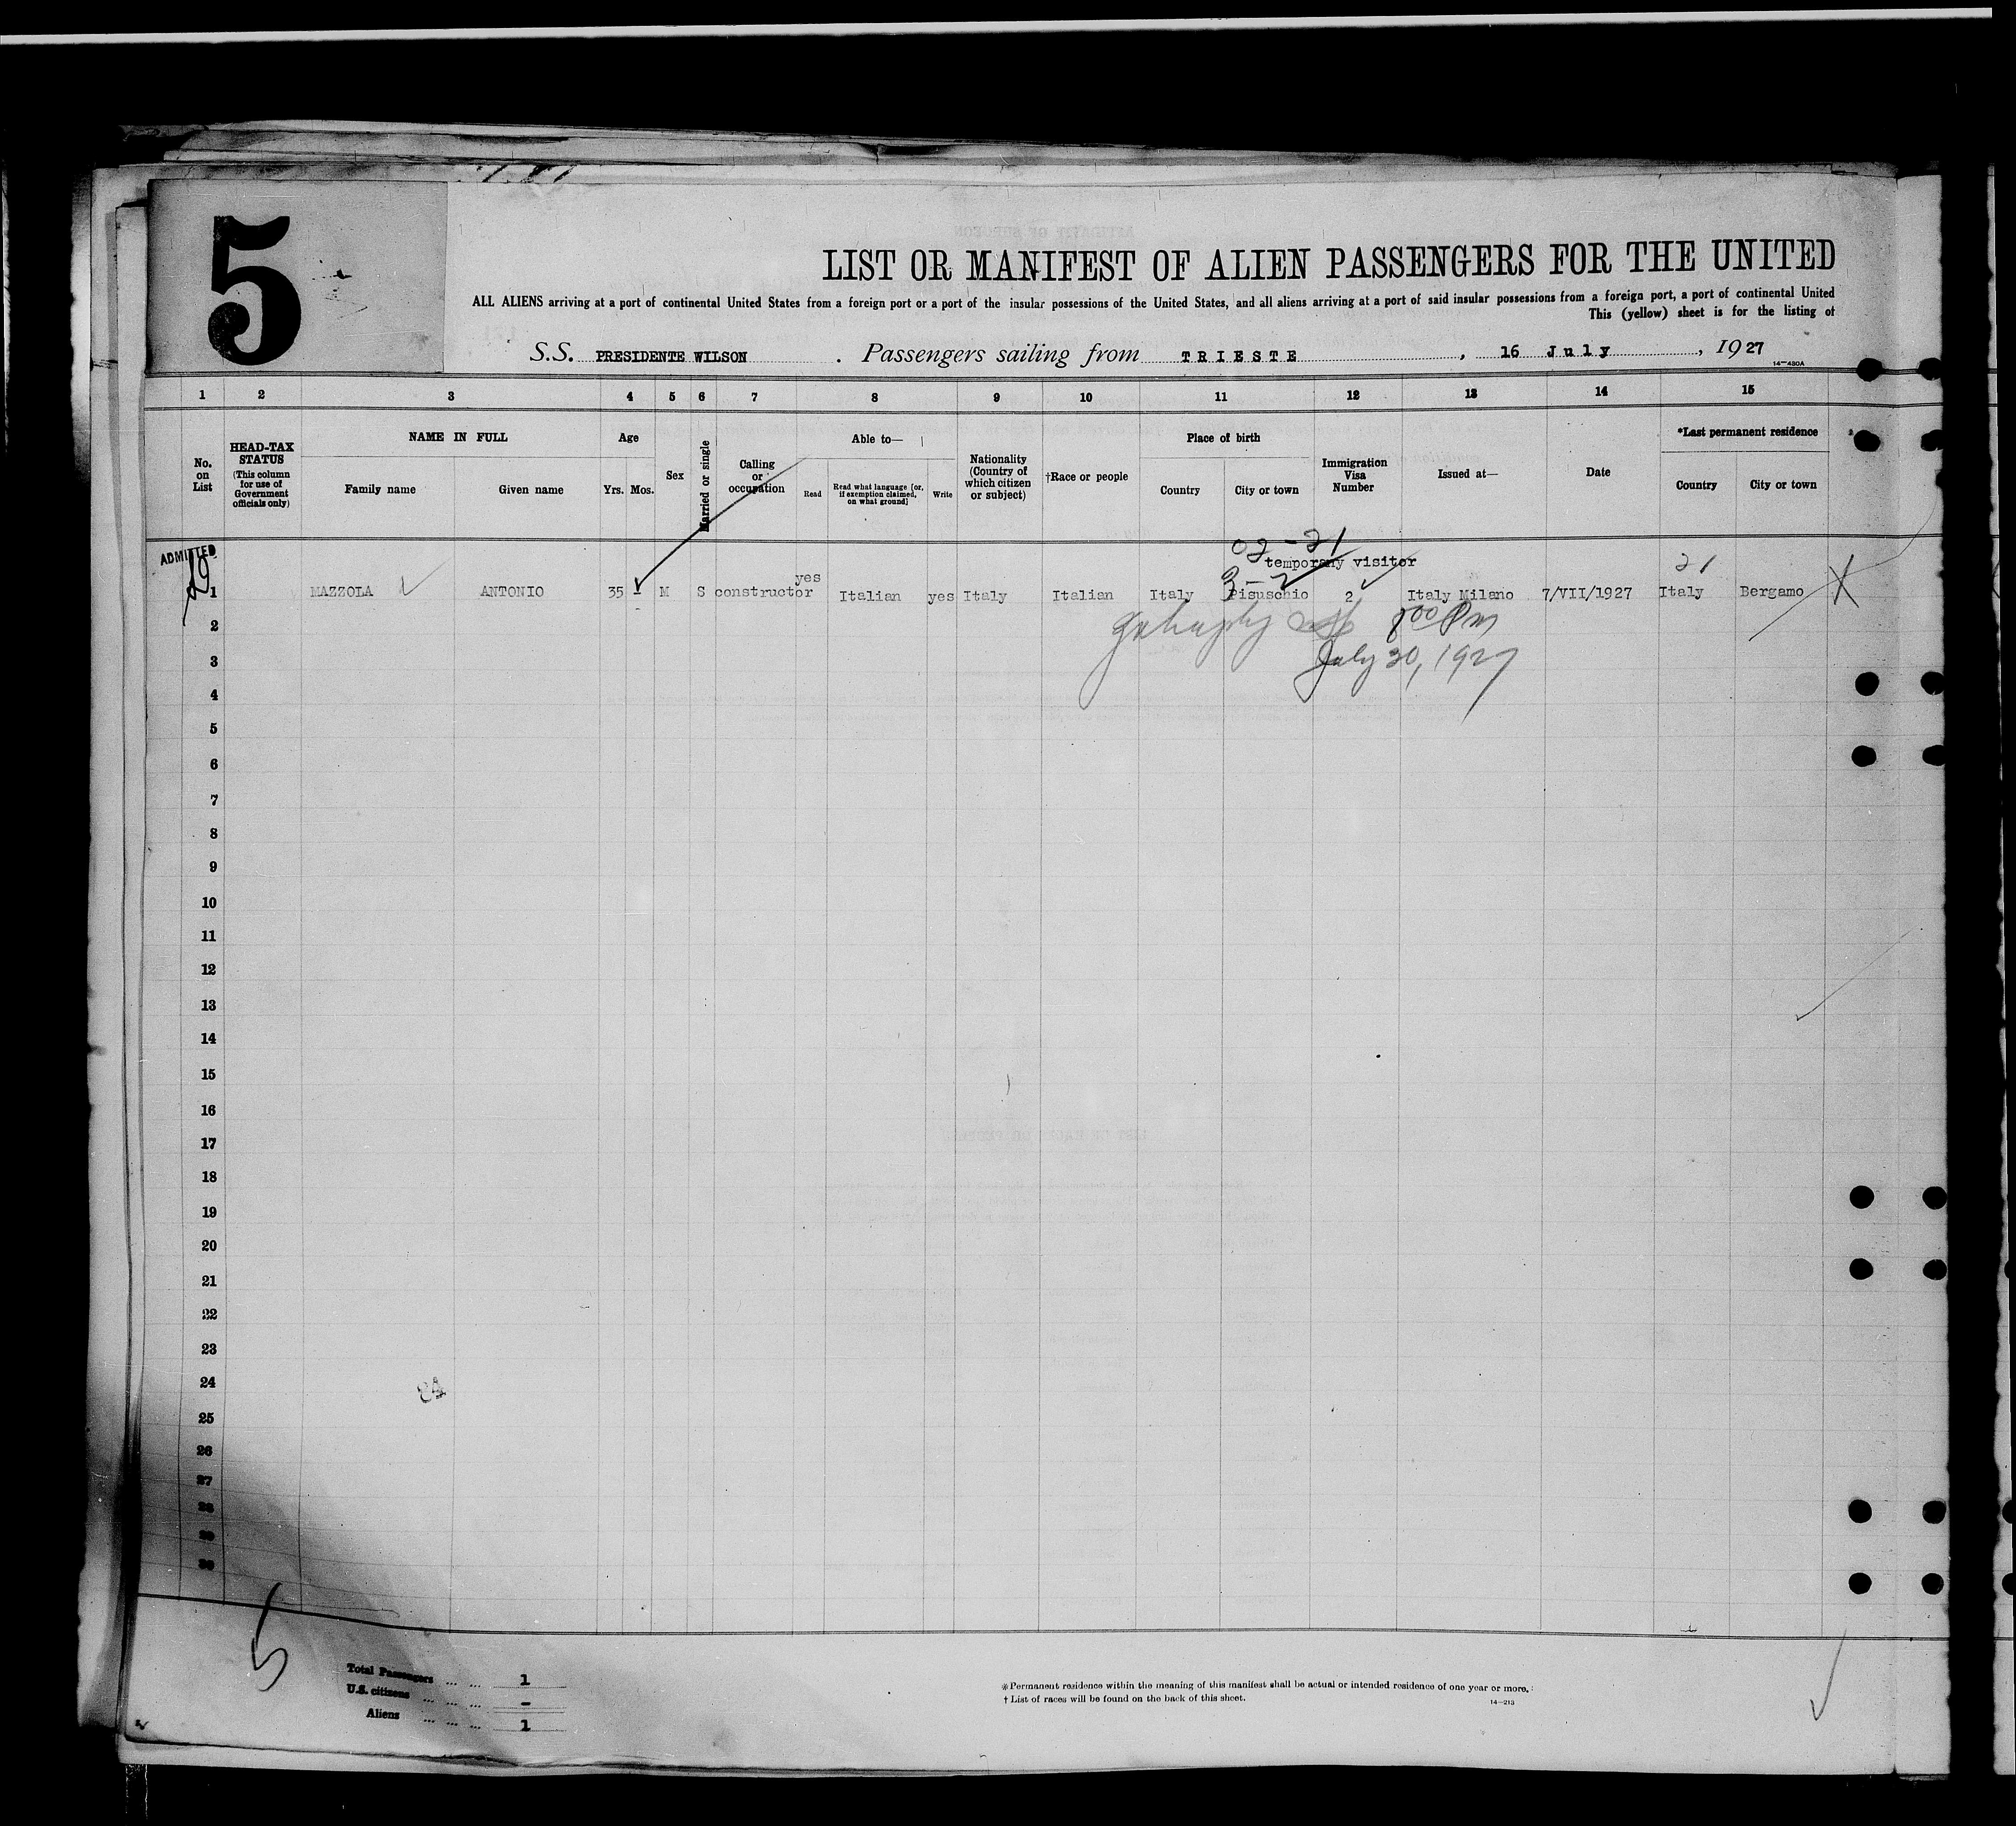 5
LIST OR MANIFEST OF ALIEN PASSENGERS FOR THE UNITED
ALL ALIENS arriving at a port of continental United States from a foreign port or a port of the insular possessions of the United States, and all aliens arriving at a port of said insular possessions from a foreign port, a port of continental United
This (yellow) sheet is for the listing of
S.S. PRESIDENTE WILSON . Passengers sailing from TRIESTE , 16 July , 1927
14—430A
1 2 3 4 5 6 7 8 9 10 11 12 13 14 15
No. on List
HEAD-TAX STATUS (This column for use of Government officials only)
NAME IN FULL
Family name Given name
Age
Yrs. Mos.
Sex
Married or single
Calling or occupation
Able to—
Read
Read what language [or, if exemption claimed, on what ground]
Write
Nationality (Country of which citizen or subject)
†Race or people
Place of birth
Country City or town
Immigration Visa Number
Issued at—
Date
*Last permanent residence
Country City or town
ADMITTED
temporary visitor
21
yes
1 MAZZOLA ANTONIO 35 M S constructor Italian yes Italy Italian Italy Pisuschio 2 Italy Milano 7/VII/1927 Italy Bergamo X
2
July 30, 1927
3
4
5
6
7
8
9
10
11
12
13
14
15
16
17
18
19
20
21
22
23
24
84
25
26
27
28
29
30
5
Total Passengers ... ... 1
U.S. citizens ... ... ... -
Aliens ... ... ... 1
*Permanent residence within the meaning of this manifest shall be actual or intended residence of one year or more.
† List of races will be found on the back of this sheet.
14—213